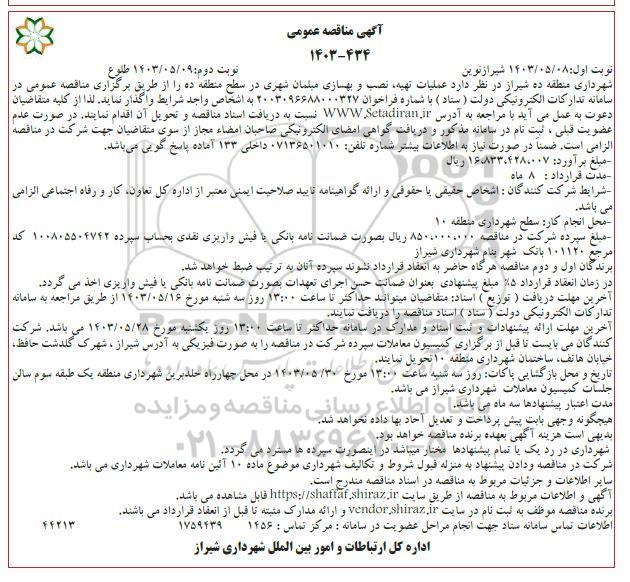 آگهی مناقصه عمومی
۱۴۰۳-۴۳۴
نوبت اول:۱۴۰۳/۰۵/۰۸ شیرازنوین
نوبت دوم:۱۴۰۳/۰۵/۰۹ طلوع
شهرداری منطقه ده شیراز در نظر دارد عملیات تهیه، نصب و بهسازی مبلمان شهری در سطح منطقه ده را از طریق برگزاری مناقصه عمومی در
سامانه تدارکات الکترونیکی دولت ( ستاد ) با شماره فراخوان ۲۰۰۳۰۹۶۶۸۸۰۰۰۳۲۷ به اشخاص واجد شرایط واگذار نماید. لذا از کلیه متقاضیان
دعوت به عمل می آید با مراجعه به آدرس WWW.Setadiran.ir نسبت به دریافت اسناد مناقصه و تحویل آن اقدام نمایند. در صورت عدم
عضویت قبلی ، ثبت نام در سامانه مذکور و دریافت گواهی امضای الکترونیکی صاحبان امضاء مجاز از سوی متقاضیان جهت شرکت در مناقصه
الزامی است. ضمنا در صورت نیاز به اطلاعات بیشتر شماره تلفن: ۰۷۱۳۶۵۰۱۰۱۰ داخلی ۱۳۳ آماده پاسخ گویی می‌باشد.
-مبلغ برآورد: ۱۶،۸۳۳،۴۲۸،۰۰۷ ریال
-مدت قرارداد : ۸ ماه
-شرایط شرکت کنندگان : اشخاص حقیقی یا حقوقی و ارائه گواهینامه تایید صلاحیت ایمنی معتبر از اداره کل تعاون، کار و رفاه اجتماعی الزامی
می باشد.
-محل انجام کار: سطح شهرداری منطقه ۱۰
-مبلغ سپرده شرکت در مناقصه ۸۵۰،۰۰۰،۰۰۰ ریال بصورت ضمانت نامه بانکی یا فیش واریزی نقدی بحساب سپرده ۱۰۰۸۰۵۵۰۴۷۴۲ کد
مرجع ۱۰۱۱۲۰ بانک شهر بنام شهرداری شیراز
برندگان اول و دوم مناقصه هرگاه حاضر به انعقاد قرارداد نشوند سپرده آنان به ترتیب ضبط خواهد شد.
در زمان انعقاد قرارداد ۵٪ مبلغ پیشنهادی بعنوان ضمانت حسن اجرای تعهدات بصورت ضمانت نامه بانکی یا فیش واریزی اخذ می گردد.
آخرین مهلت دریافت ( توزیع ) اسناد: متقاضیان میتوانند حداکثر تا ساعت ۱۳:۰۰ روز سه شنبه مورخ ۱۴۰۳/۰۵/۱۶ از طریق مراجعه به سامانه
تدارکات الکترونیکی دولت ( ستاد ) اسناد مناقصه را دریافت نمایند.
آخرین مهلت ارائه پیشنهادات و ثبت اسناد و مدارک در سامانه حداکثر تا ساعت ۱۳:۰۰ روز یکشنبه مورخ ۱۴۰۳/۰۵/۲۸ می باشد. شرکت
کنندگان می بایست تا قبل از برگزاری کمیسیون معاملات سپرده شرکت در مناقصه را به صورت فیزیکی به آدرس شیراز ، شهرک گلدشت حافظ،
خیابان هاتف، ساختمان شهرداری منطقه ۱۰تحویل نمایند.
تاریخ و محل بازگشایی پاکات: روز سه شنبه ساعت ۱۳:۰۰ مورخ ۱۴۰۳/۰۵/۳۰ در محل چهارراه خلدبرین شهرداری منطقه یک طبقه سوم سالن
جلسات کمیسیون معاملات شهرداری شیراز می باشد.
مدت اعتبار پیشنهادها سه ماه می باشد.
هیچگونه وجهی بابت پیش پرداخت و تعدیل آحاد بها داده نخواهد شد.
بدیهی است هزینه آگهی بعهده برنده مناقصه خواهد بود.
شهرداری در رد یک یا تمام پیشنهادها مختار میباشد در اینصورت سپرده ها مسترد می گردد.
شرکت در مناقصه ودادن پیشنهاد به منزله قبول شروط و تکالیف شهرداری موضوع ماده ۱۰ آئین نامه معاملات شهرداری می باشد.
سایر اطلاعات و جزئیات مربوط به مناقصه در اسناد مناقصه مندرج است.
آگهی و اطلاعات مربوط به مناقصه از طریق سایت https://shaffaf.shiraz.ir قابل مشاهده می باشد.
برنده مناقصه موظف به ثبت نام در سایت vendor.shiraz.ir و ارائه مدارک مثبته تا قبل از انعقاد قرارداد می باشند.
اطلاعات تماس سامانه ستاد جهت انجام مراحل عضویت در سامانه : مرکز تماس : ۱۴۵۶
۱۷۵۹۴۳۹
۴۴۲۱۳
اداره کل ارتباطات و امور بین الملل شهرداری شیراز